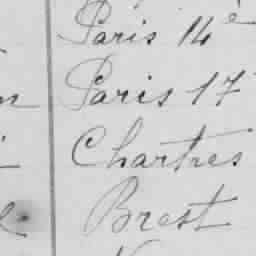 Paris 14e
Paris 17
Chartres
Brest